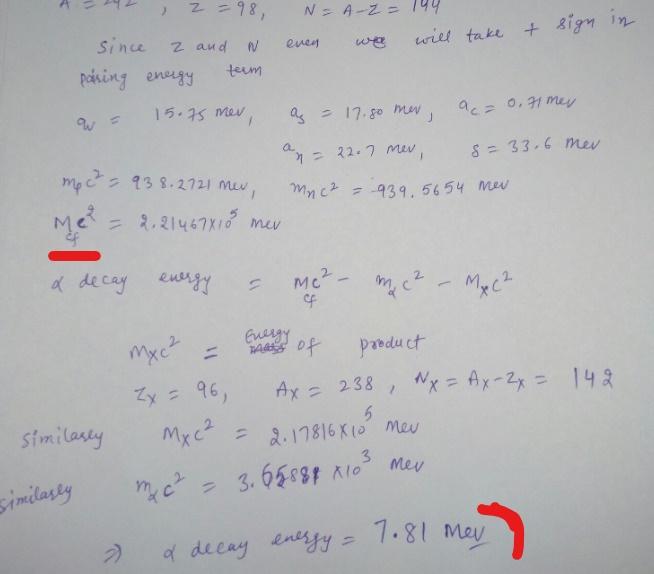 A = 242 , Z = 98, N = A-Z = 144
Since Z and N even will take + sign in
pairing energy term
av = 15.75 Mev, as = 17.80 Mev, ac = 0.71 Mev
an = 22.7 Mev, δ = 33.6 Mev
mpc² = 938.2721 Mev, mnc² = 939.5654 Mev
Mc² = 2.21467X10⁵ Mev
Cf
α decay energy = Mc² - mαc² - Mxc²
Cf
Mxc² = Energy of product
Zx = 96, Ax = 238 , Nx = Ax-Zx = 142
Similarly Mxc² = 2.17816X10⁵ Mev
Similarly mαc² = X10³ Mev
⇒ α decay energy = 7.81 Mev